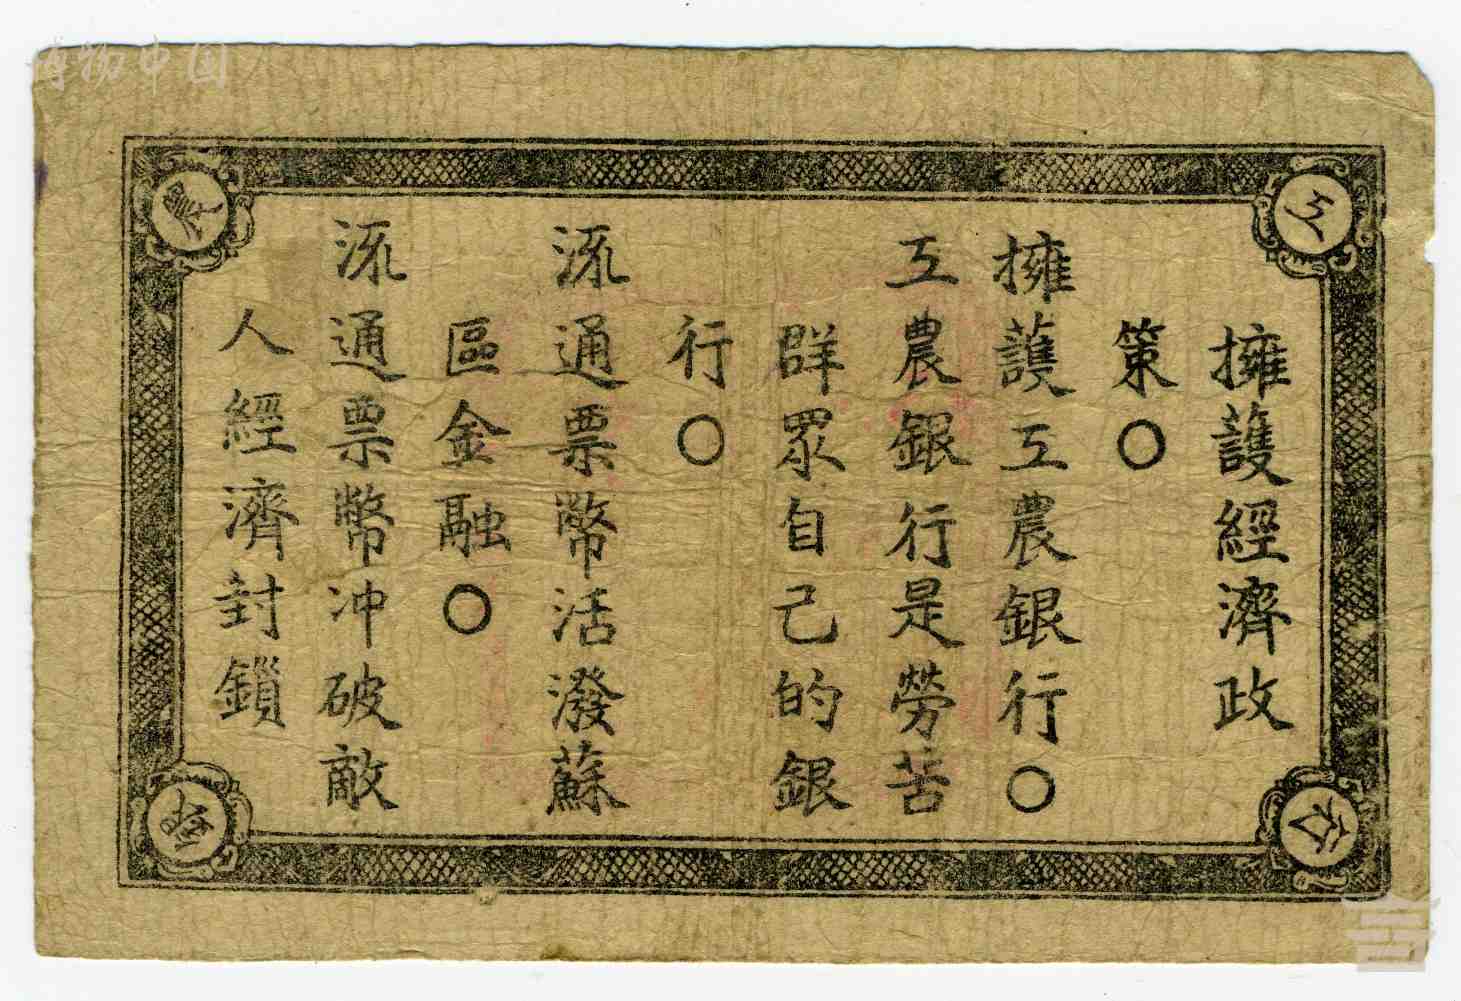 博物中国
擁護經濟政
策〇
擁護工農銀行〇
工農銀行是勞苦
群眾自己的銀
行〇
流通票幣活潑蘇
區金融〇
流通票幣冲破敵
人經濟封鎖